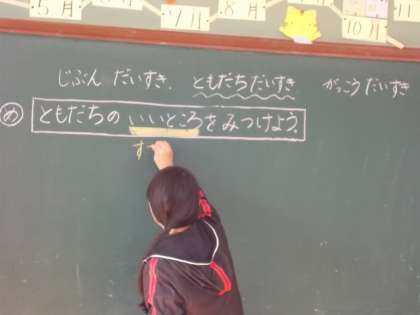 5月
7月
8月
10月
じぶん だいすき、ともだちだいすき がっこうだいすき
め ともだちの いいところをみつけよう。
す